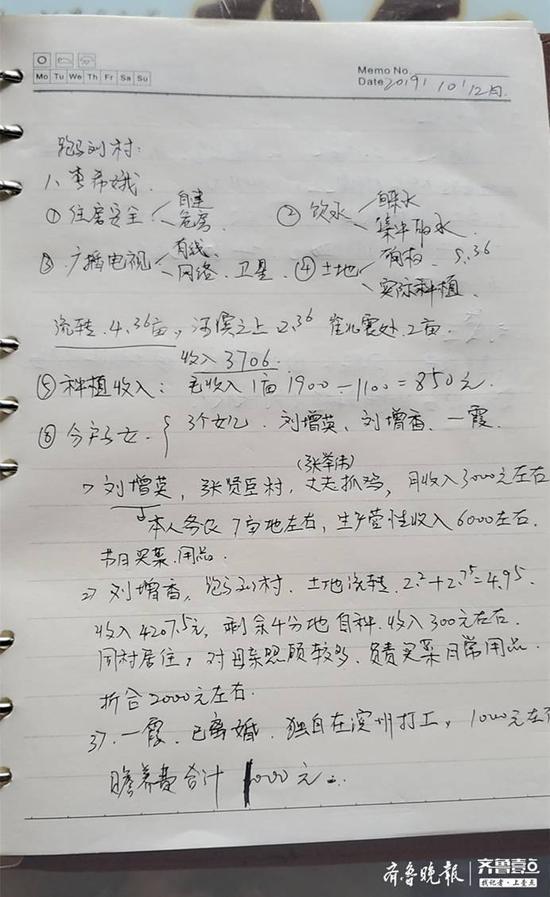 Mo Tu We Th Fr Sa Su
Memo No.
Date 2019 10 12
跑马刘村:
1、李希娥.
① 住房安全 自建 危房
② 饮水 自来水 集中取水
③ 广播电视 有线、网络、卫星
④ 土地 确权 5.36 实际种植
流转 4.36亩, 2.36 2亩.
收入 3706.
⑤ 种植收入: 毛收入 1亩 1900-1100=850元.
⑥ 分户子女. 3个女儿. 刘增英、刘增香、一霞.
(张举沛)
1) 刘增英, 张贤臣村, 丈夫抓鸡, 月收入3000元左右
本人务农 7亩地左右, 生产营性收入6000左右.
节日买菜、用品.
2) 刘增香, 跑马刘村. 土地流转. 2.2+2.75=4.95.
收入 4207.5元, 剩余4分地自种. 收入300元左右.
同村居住, 对母亲照顾较多、负责买菜日常用品.
折合2000元左右.
3). 一霞. 已离婚. 独自在滨州打工, 1000元左右
赡养费合计 1000元.
齐鲁晚报
齐鲁壹点
找记者·上壹点